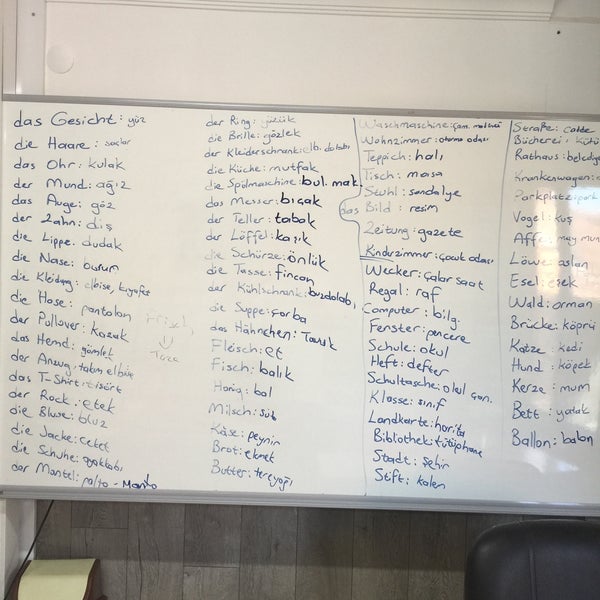 das Gesicht: yüz
die Haare: saçlar
das Ohr: kulak
der Mund: ağız
das Auge: göz
der Zahn: diş
die Lippe: dudak
die Nase: burun
die Kleidung: elbise, kıyafet
die Hose: pantolon
der Pullover: kazak
das Hemd: gömlek
der Anzug: takım elbise
das T-Shirt: tişört
der Rock: etek
die Bluse: bluz
die Jacke: ceket
die Schuhe: ayakkabı
der Mantel: palto - Manto
Frisch
Taze
der Ring: yüzük
die Brille: gözlek
der Kleiderschrank: elb. dolabı
die Küche: mutfak
die Spülmaschine: bul. mak.
das Messer: bıçak
der Teller: tabak
der Löffel: kaşık
die Schürze: önlük
die Tasse: fincan
der Kühlschrank: buzdolabı
die Suppe: çorba
das Hähnchen: Tavuk
Fleisch: et
Fisch: balık
Honig: bal
Milsch: süt
Käse: peynir
Brot: ekmek
Butter: tereyağı
Waschmaschine: çam.
Wohnzimmer: oturma odası
Teppich: halı
Tisch: masa
Stuhl: sandalye
das Bild: resim
Zeitung: gazete
Kinderzimmer: çocuk odası
Wecker: çalar saat
Regal: raf
Computer: bilg.
Fenster: pencere
Schule: okul
Heft: defter
Schultasche: okul çan.
Klasse: sınıf
Landkarte: harita
Bibliothek: kütüphane
Stadt: şehir
Stift: kalem
Straße: cadde
Bücherei: kütü
Rathaus: belediye
Krankenwagen:
Parkplatz: park
Vogel: kuş
Affe: maymun
Löwe: aslan
Esel: eşek
Wald: orman
Brücke: köprü
Katze: kedi
Hund: köpek
Kerze: mum
Bett: yatak
Ballon: balon